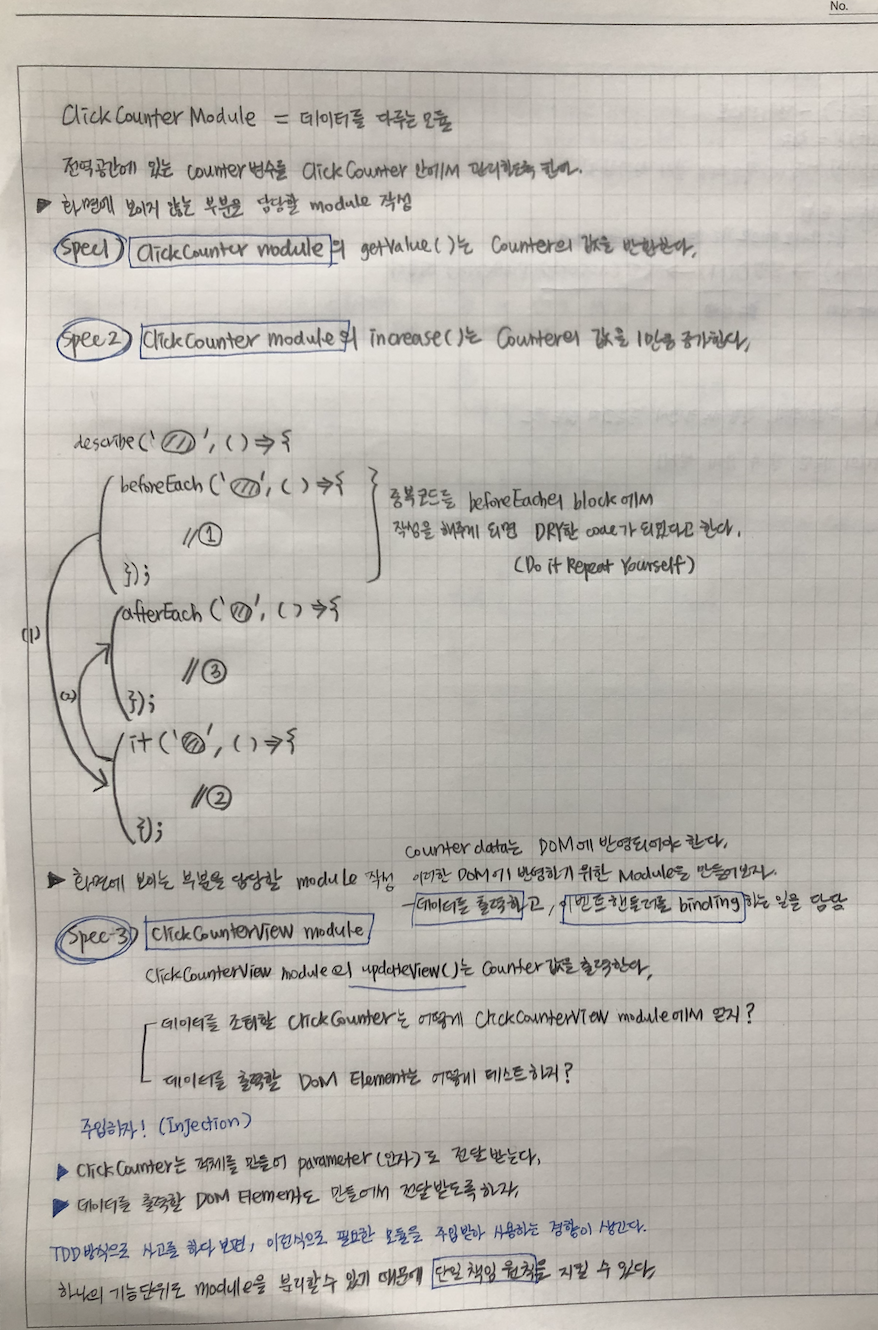 No.
ClickCounter Module = 데이터를 다루는 모듈
전역공간에 있는 counter변수를 ClickCounter 안에서 관리하도록 한다.
▶ 화면에 보이지 않는 부분을 담당할 module 작성
Spec1) ClickCounter module의 getValue()는 Counter의 값을 반환한다.
Spec2) ClickCounter module의 increase()는 Counter의 값을 1만큼 증가한다.
describe(' ', () => {
beforeEach(' ', () => {
중복코드를 beforeEach의 block에서
// ①
작성을 해주게 되면 DRY한 code가 되었다고 한다.
(Do it Repeat Yourself)
});
afterEach(' ', () => {
(1)
// ③
(2)
});
it(' ', () => {
// ②
});
counter data는 DOM에 반영되어야 한다.
▶ 화면에 보이는 부분을 담당할 module 작성
이러한 DOM에 반영하기 위한 Module을 만들어보자.
- 데이터를 출력하고, 이벤트 핸들러를 binding하는 일을 담당
Spec-3) ClickCounterView module
ClickCounterView module의 updateView()는 Counter값을 출력한다.
데이터를 조회할 ClickCounter는 어떻게 ClickCounterView module에서 얻지?
데이터를 출력할 DOM Element는 어떻게 테스트하지?
주입하자! (Injection)
▶ ClickCounter는 객체를 만들어 parameter(인자)로 전달 받는다.
▶ 데이터를 출력할 DOM Element도 만들어서 전달받도록하자.
TDD방식으로 사고를 하다 보면, 이런식으로 필요한 모듈을 주입받아 사용하는 경향이 생긴다.
하나의 기능단위로 module을 분리할수 있기 때문에 단일 책임 원칙을 지킬 수 있다.